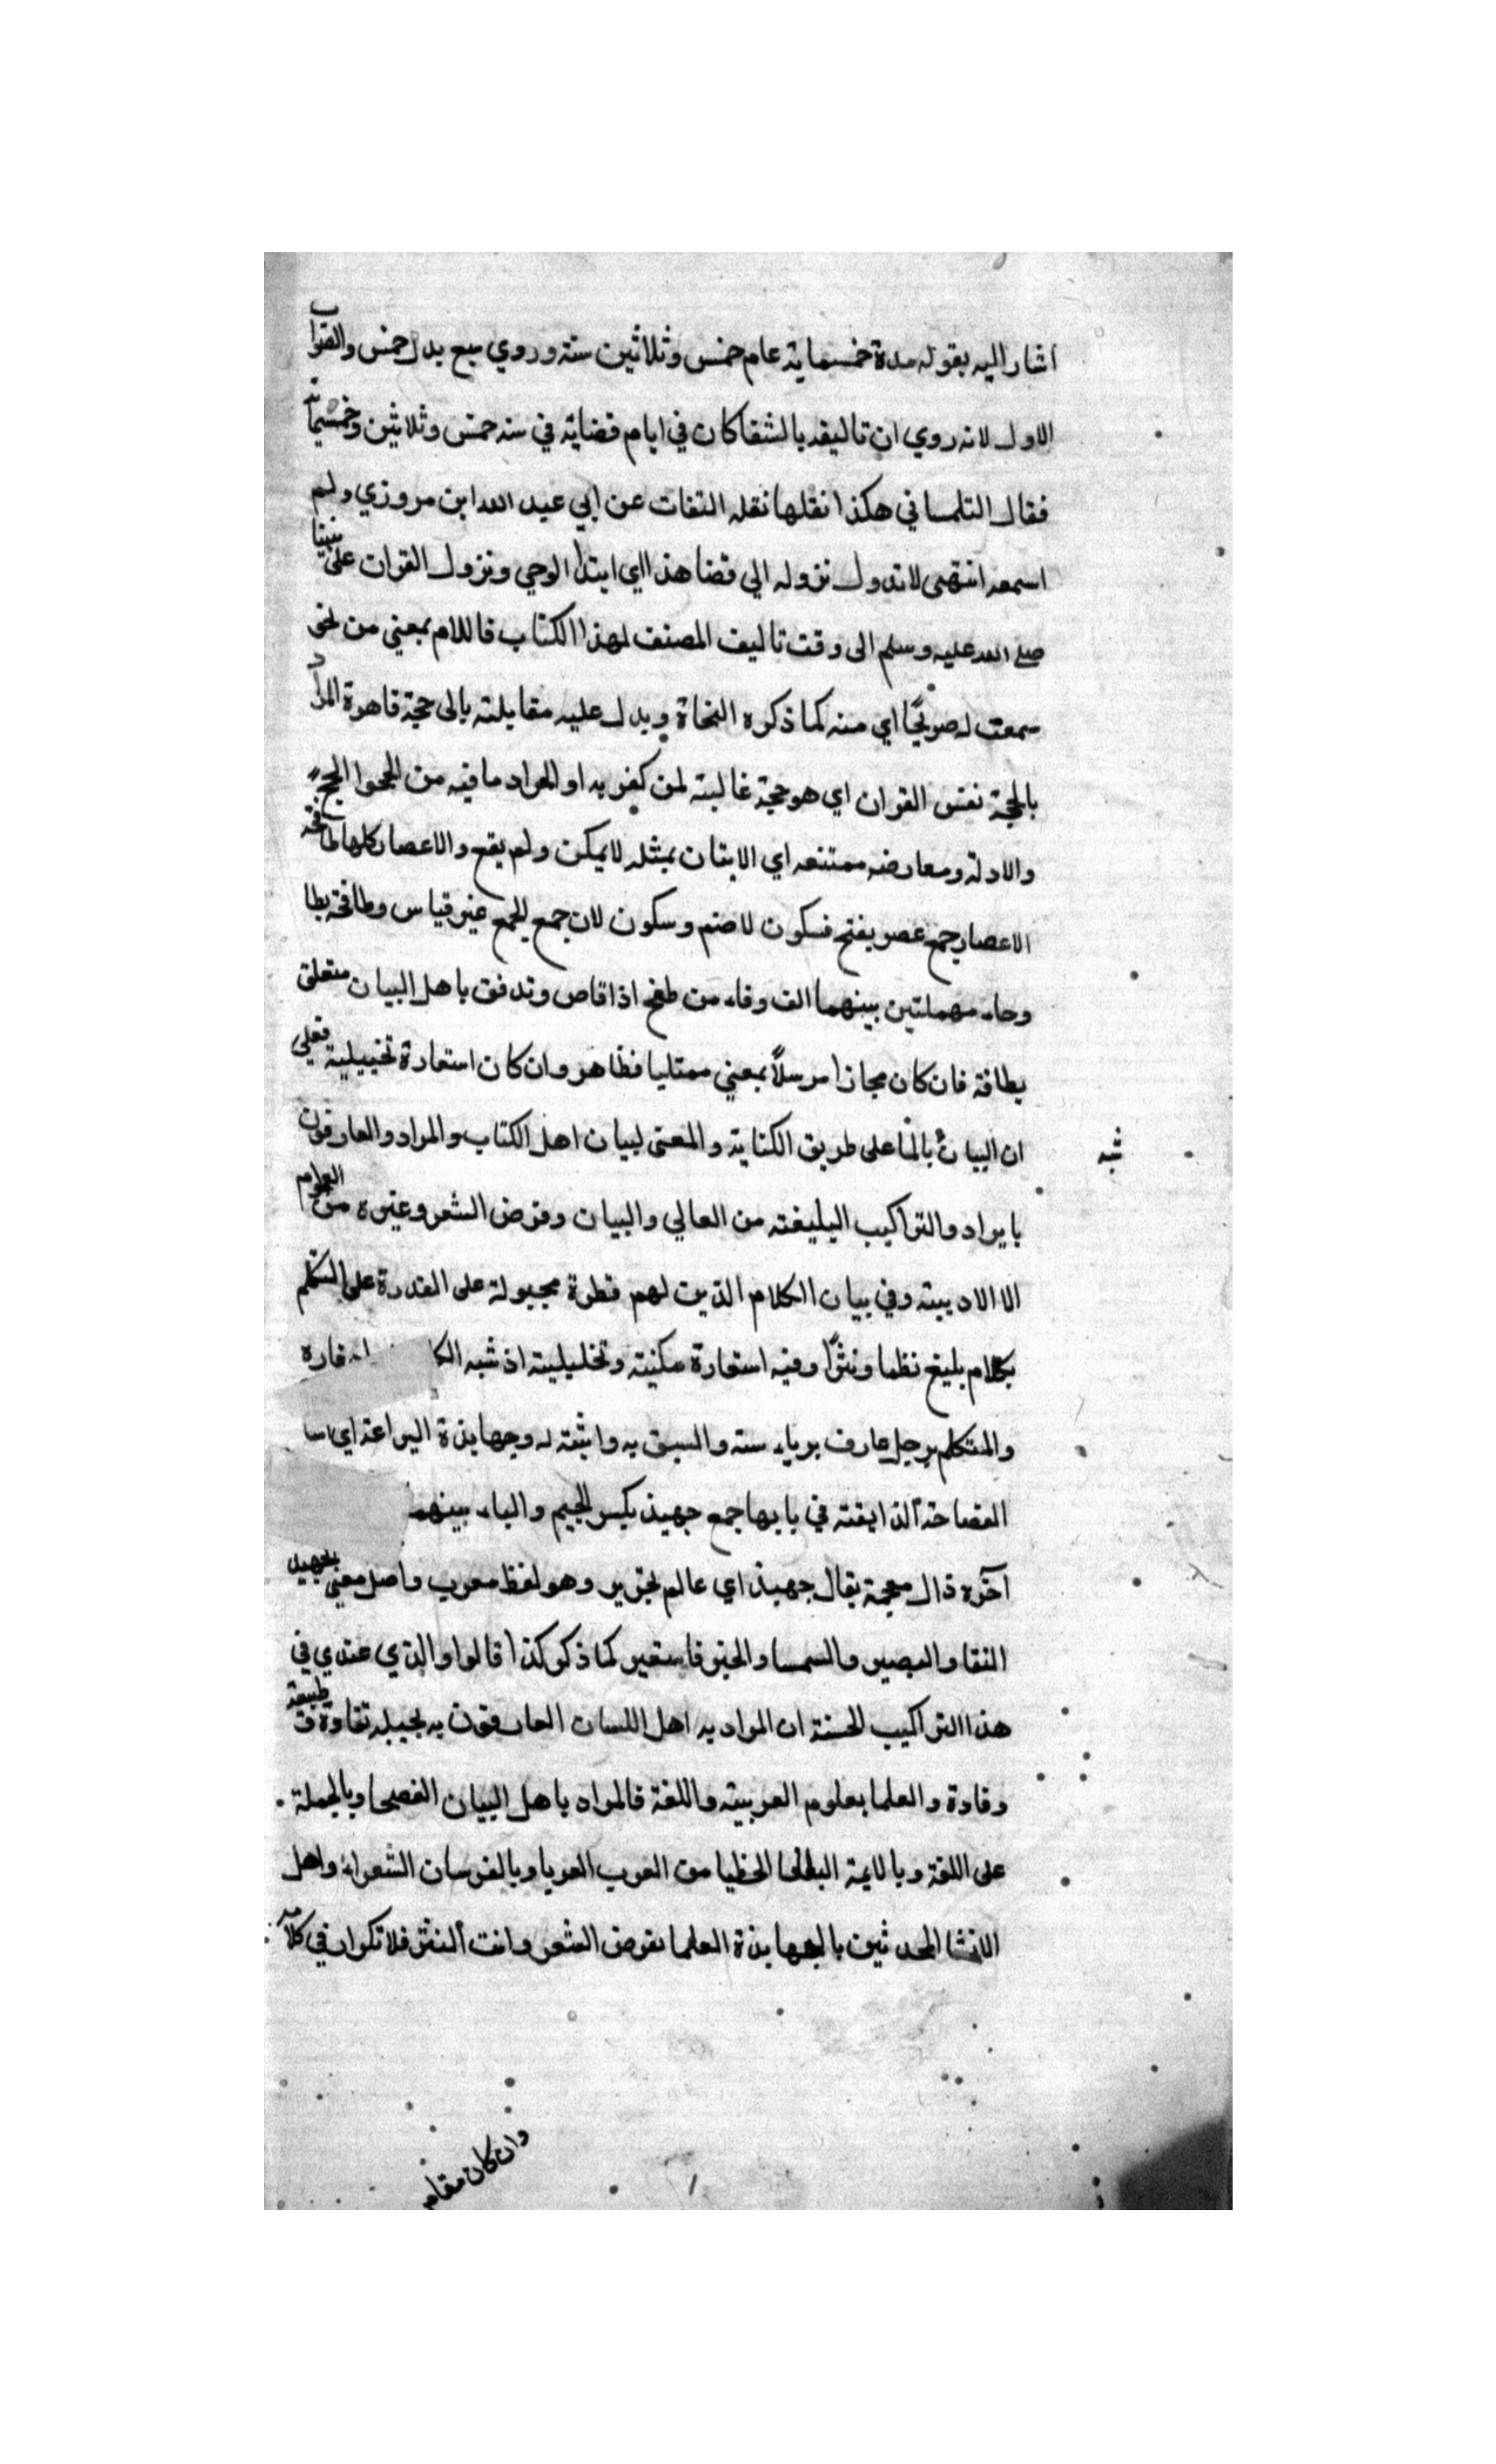 اشار اليه بقوله مدة خمسماية عام خمس وثلاثين سنة وروي سبع بدل خمس والصواب
الاول لانه روي ان تاليفه بالشفا كان في ايام قضاية في سنه خمس وثلاثين وخمسماية
فقال التلمساني هكذا نقلها نقله الثقات عن ابي عبد الله ابن مروزي ولم
اسمعه انتهى لاتدول نزوله الي قضا هذا اي ابتدا الوحي ونزول القران على نبينا
صلى الله عليه وسلم الى وقت تاليف المصنف لهذا الكتاب فاللام بمعني من نحو
سمعت له صريخًا اي منه كما ذكره النحاة ويدل عليه مقابلته بالى حجة قاهرة المراد
بالحجة نفس القران اي هو حجة غالبته لمن كفر به او المراد ما فيه من الحجج
والادلة ومعارضه ممتنعه اي الاتيان بمثله لا يمكن ولم يقع والاعصار كلها طافحة
الاعصار جمع عصر بفتح فسكون لا ضم وسكون لان جمع الجمع غير قياس وطافحة بطا
وحاء مهملتين بينهما الف وفاء من طفح اذا فاص وتدفق باهل البيان متعلق
بطافة فان كان مجازا مرسلاً بمعني ممتليا فظاهر وان كان استعارة تخييلية فعلي
ان البيان بالماء على طريق الكناية والمعنى لبيان اهل الكتاب والمراد والعارفون
شبه
بايراد والتراكيب البليغته من العالي والبيان وقرض الشعر وغيره من العلوم
الا الادبيته وفي بيان الكلام الذين لهم فطرة مجبولة على القدرة على التكلم
بكلام بليغ نظما ونثرًا وفيه استعارة مكنيته وتخليليته اذ شبه
والمتكلم برجل عارف برياء سته والسبق به واثبته له وجهابذة البراعة اي
الفصاحة الذايفته في بابها جمع جهبذ بكسر الجيم والباء بينهما
آخره ذال معجمة يقال جهبذ اي عالم نحرير وهو لفظ معرب واصل معني الجهبد
النقا والبصير والسمسا والحبر فاستعير كما ذكر كذا قالوا والذي عندي في
هذا التراكيب الحسنة ان المراد به اهل اللسان العارفون به بجبيله نقاوة وطبيعة
وقادة والعلما بعلوم العربيته واللغة فالمراد باهل البيان الفصحا وبالجملة
على اللغة وبالايمة البلغا الخطبا من العرب العربا وبالفرسان الشعراء واهل
الانشا المحدثين بالجهابذة العلما بقرض الشعر وانت النثر فلا تكرار في كلامه
وان كان مقام